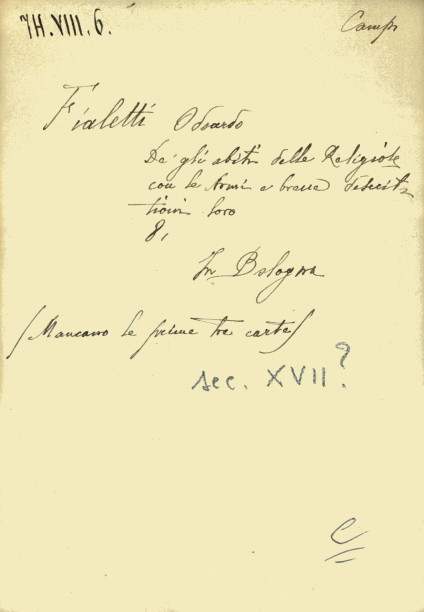 7H.VIII.6.
Campi
Fialetti Odoardo
De' gli abiti delle Religioni
con le Armi e breve descrit
tioni loro
8,
In Bologna
(Mancano le prime tre carte)
sec. XVII?
C